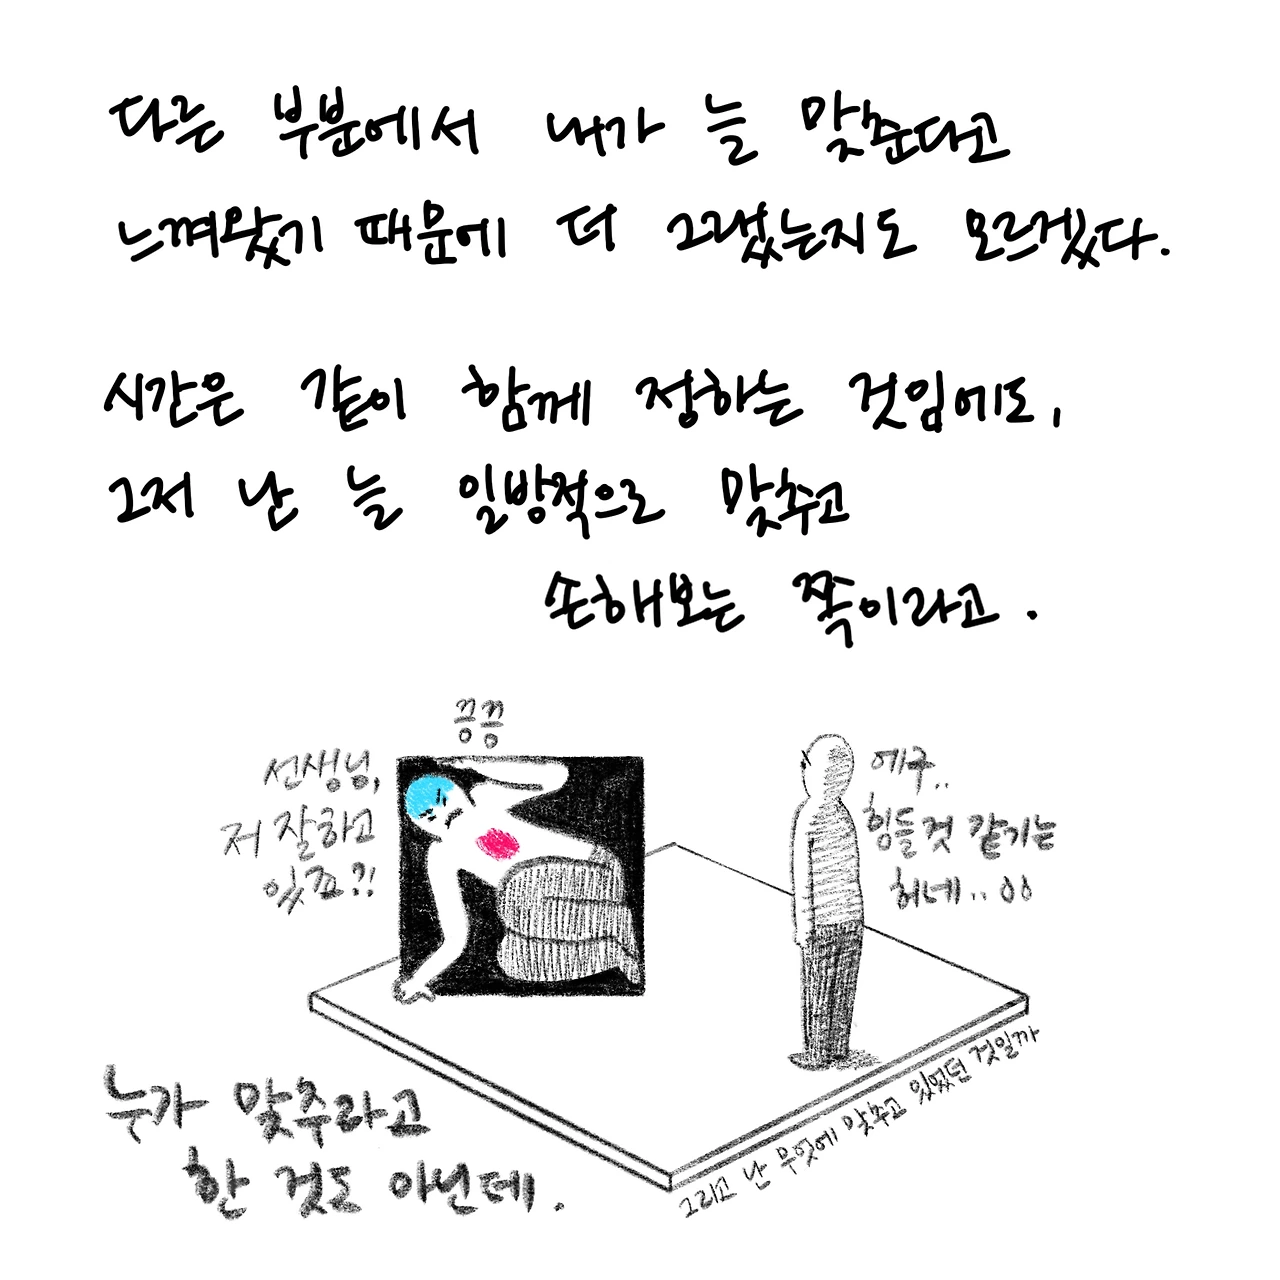 다른 부분에서 내가 늘 맞춘다고
느껴왔기 때문에 더 그랬는지도 모르겠다.
시간은 같이 함께 정하는 것임에도,
그저 난 늘 일방적으로 맞추고
손해보는 쪽이라고.
끙끙
선생님,
저 잘하고
있죠?!
에구..
힘들것 같기는
하네..ㅇㅇ
누가 맞추라고
한 것도 아닌데.
그리고 난 무엇에 맞추고 있었던 것일까